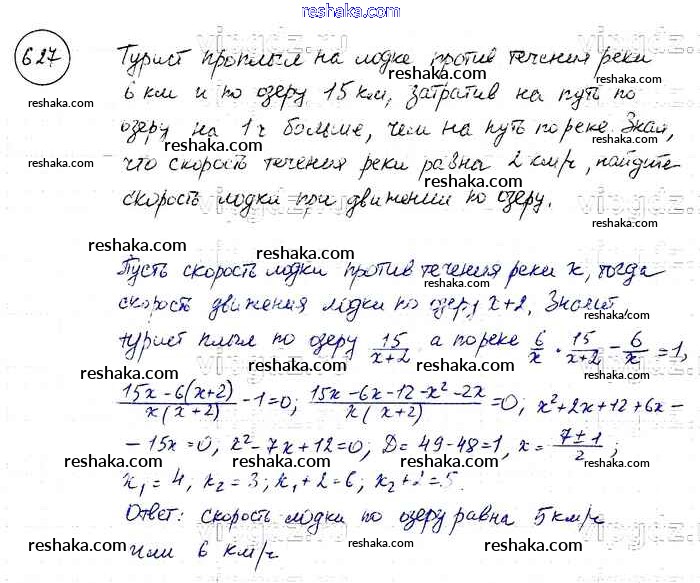 reshaka.com
627 Турист проплыл на лодке против течения реки
6 км и по озеру 15 км, затратив на путь по
reshaka.com reshaka.com reshaka.com reshaka.com
озеру на 1 ч больше, чем на путь по реке. Зная,
что скорость течения реки равна 2 км/ч, найдите
reshaka.com reshaka.com reshaka.com reshaka.com
скорость лодки при движении по озеру.
reshaka.com reshaka.com reshaka.com
Пусть скорость лодки против течения реки x, тогда
скорость движения лодки по озеру x+2. Значит,
reshaka.com reshaka.com reshaka.com
турист плыл по озеру 15/(x+2) а по реке 6/x . 15/(x+2) - 6/x = 1,
reshaka.com reshaka.com reshaka.com
(15x-6(x+2))/(x(x+2)) - 1=0; (15x-6x-12-x²-2x)/(x(x+2)) =0; x²+2x+12+6x-
- 15x=0, x²-7x+12=0; D=49-48=1, x= (7±1)/2 ;
reshaka.com reshaka.com reshaka.com
x₁=4, x₂=3; x₁+2=6; x₂+2=5.
Ответ: скорость лодки по озеру равна 5 км/ч
reshaka.com reshaka.com reshaka.com reshaka.com
или 6 км/ч
reshaka.com